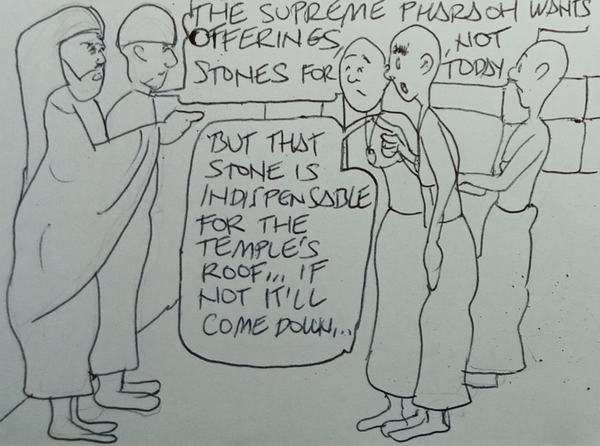 THE SUPREME PHARAOH WANTS
OFFERINGS, NOT
STONES FOR TODAY
BUT THAT
STONE IS
INDISPENSABLE
FOR THE
TEMPLE'S
ROOF... IF
NOT IT'LL
COME DOWN...